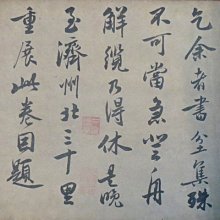 乞余者書坌集殊
不可當急登舟
解纜乃得休是晚
至濟州北三十里
重展此卷因題